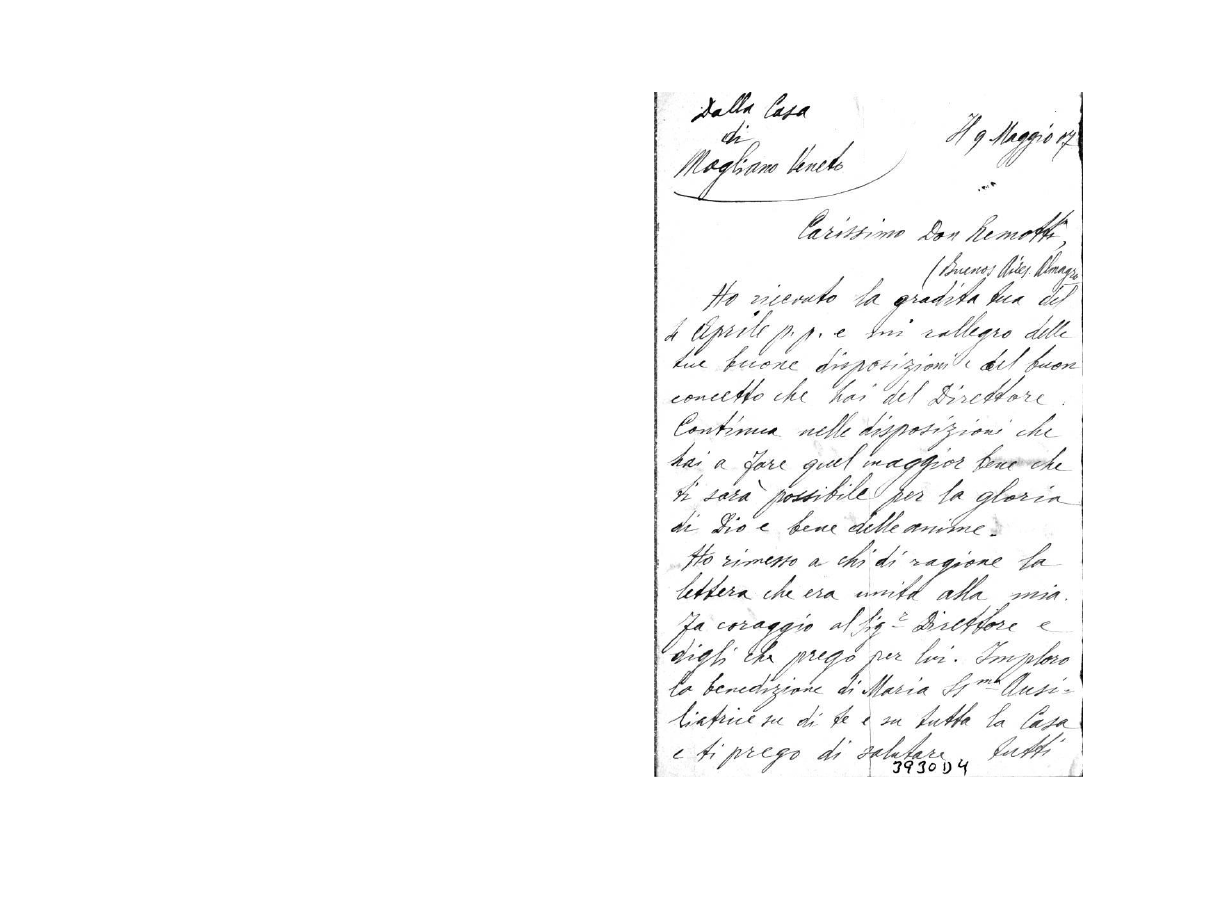 Dalla Casa
di
Mogliano Veneto
Il 9 Maggio 07
Carissimo Don Remotti,
(Buenos Aires. Almagro
Ho ricevuto la gradita tua del
4 Aprile p. p. e mi rallegro delle
tue buone disposizioni e del buon
concetto che hai del Direttore.
Continua nelle disposizioni che
hai a fare quel maggior bene che
ti sarà possibile per la gloria
di Dio e bene delle anime.
Ho rimesso a chi di ragione la
lettera che era unita alla mia.
Fa coraggio al Sigr Direttore e
digli che prego per lui. Imploro
la benedizione di Maria SSma Ausi-
liatrice su di te e su tutta la Casa
e ti prego di salutare tutti
3930D4